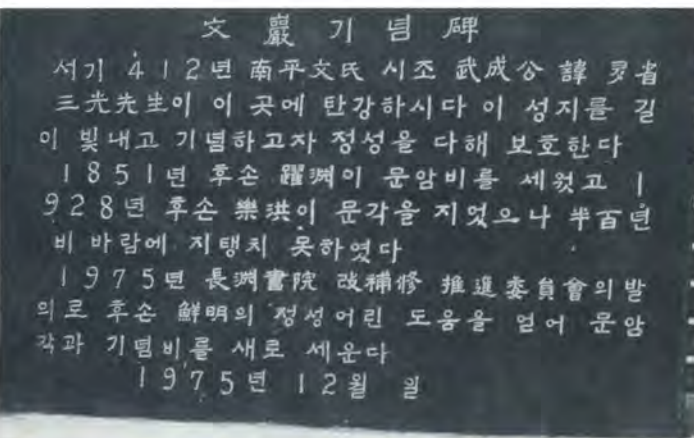 文巖기념碑
서기 412년 南平文氏 시조 武成公 諱 多省
三光先生이 이 곳에 탄강하시다 이 성지를 길
이 빛내고 기념하고자 정성을 다해 보호한다
1851년 후손 躍渊이 문암비를 세웠고 1
928년 후손 樂洪이 문각을 지었으나 半百년
비 바람에 지탱치 못하였다
1975년 長渊書院 改補修 推進委員會의 발
의로 후손 鮮明의 정성어린 도움을 얻어 문암
각과 기념비를 새로 세운다
1975년 12월 일